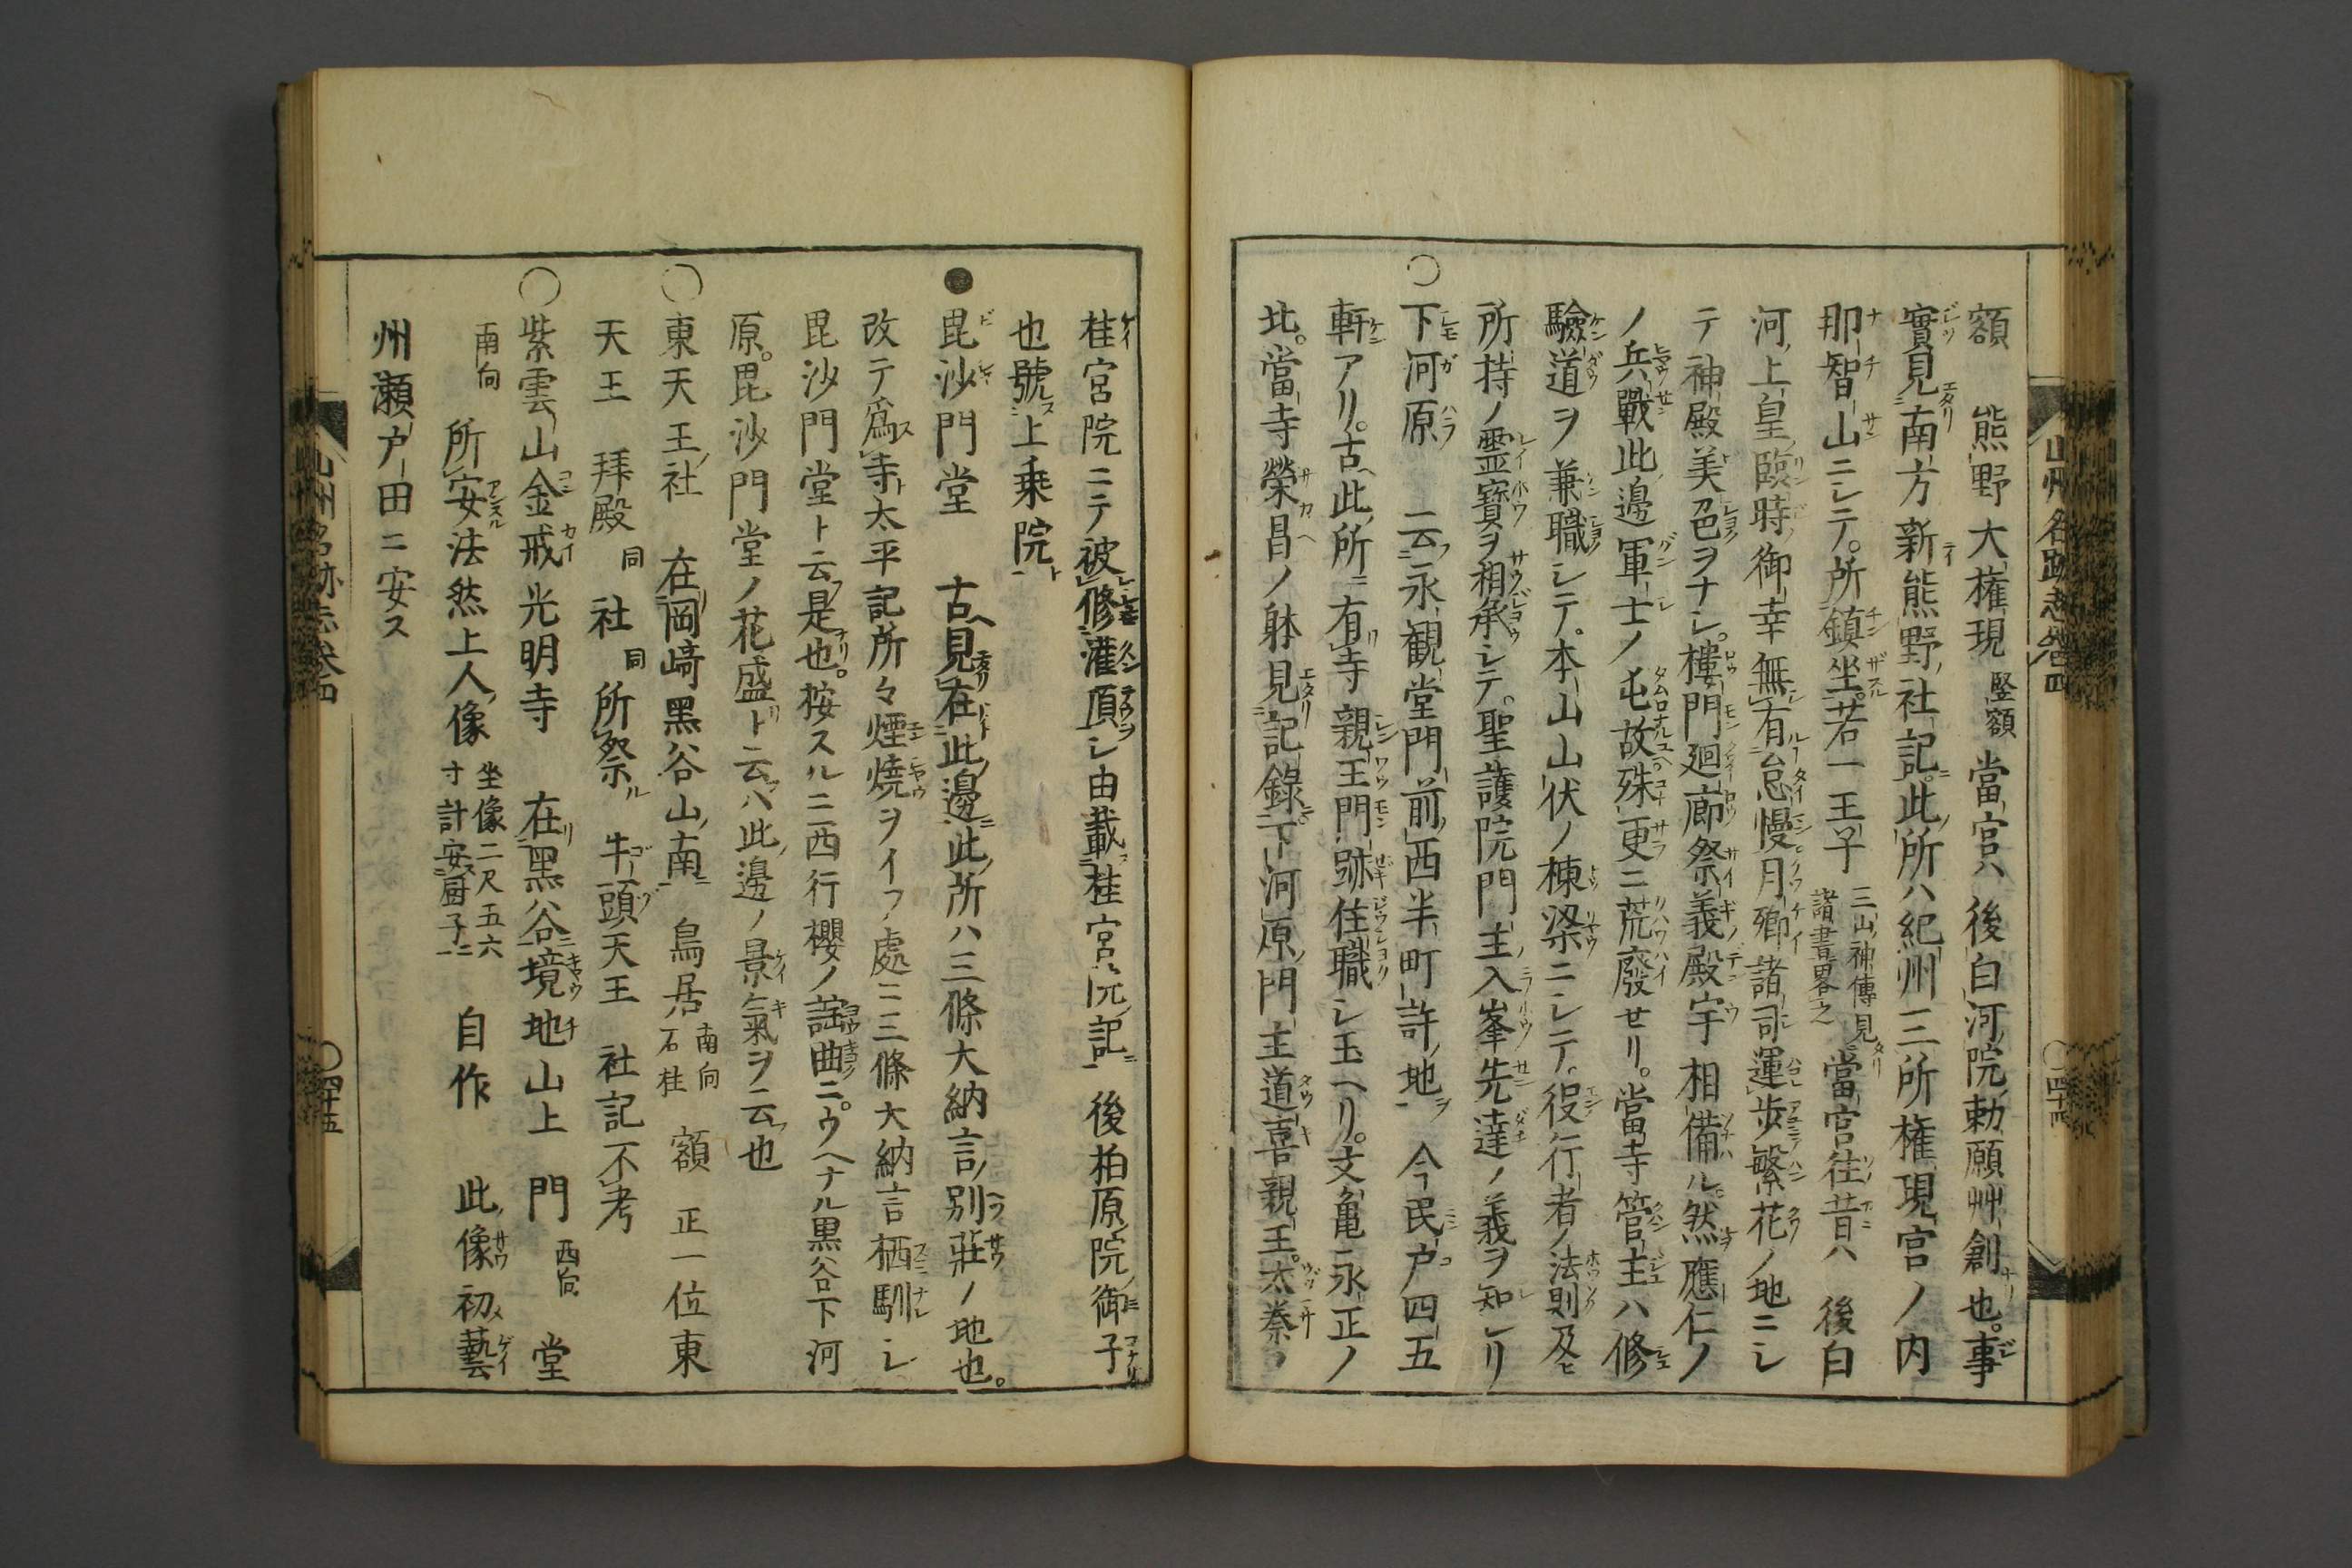 額　熊野大権現 竪額 當宮ハ後白河院勅願艸創也。事
實見南方新熊野社記。此所ハ紀州三所権現宮ノ内
那智山ニシテ。所鎮坐若一王子 三山神傳見諸書畧之 當宮往昔ハ　後白
河上皇臨時御幸無有怠慢。月卿諸司運歩繁花ノ地ニシ
テ神殿美色ヲナシ。樓門廻廊祭義殿宇相備ル。然應仁ノ
ノ兵戰此邊軍士ノ屯故殊更ニ荒廢セリ。當寺管主ハ修
驗道ヲ兼職シテ。本山山伏ノ棟梁ニシテ。役行者ノ法則及ヒ
所持ノ霊寳ヲ相承シテ。聖護院門主入峯先達ノ義ヲ知レリ
○下河原　云永観堂門前西半町許地　今民戸四五
軒アリ。古此所ニ有寺親王門跡住職シ玉ヘリ。文亀永正ノ
比。當寺榮昌ノ躰見記録下河原門主道喜親王。太秦ノ
桂宮院ニテ被修灌頂シ由載桂宮院記　後柏原院御子
也號上乗院
●毘沙門堂　古見在此邊此所ハ三條大納言別莊ノ地也。
改テ為寺太平記所々煙焼ヲイフ處ニ三條大納言栖馴シ
毘沙門堂ト云是也。按スルニ西行櫻ノ謡曲ニ。ウヘナル黒谷下河
原。毘沙門堂ノ花盛ト云ハ此邊ノ景氣ヲ云也
○東天王社　在岡﨑黒谷山南　鳥居 南向石柱　額　正一位東
天王　拜殿 同　社 同　所祭　牛頭天王　社記不考
○紫雲山金戒光明寺　在黒谷境地山上　門 西向　堂
南向　所安法然上人像 坐像二尺五六寸計安厨子　自作　此像初藝
州瀬戸田ニ安ス
山州名跡志巻四
○四十四
山州名跡志巻四
○四十五